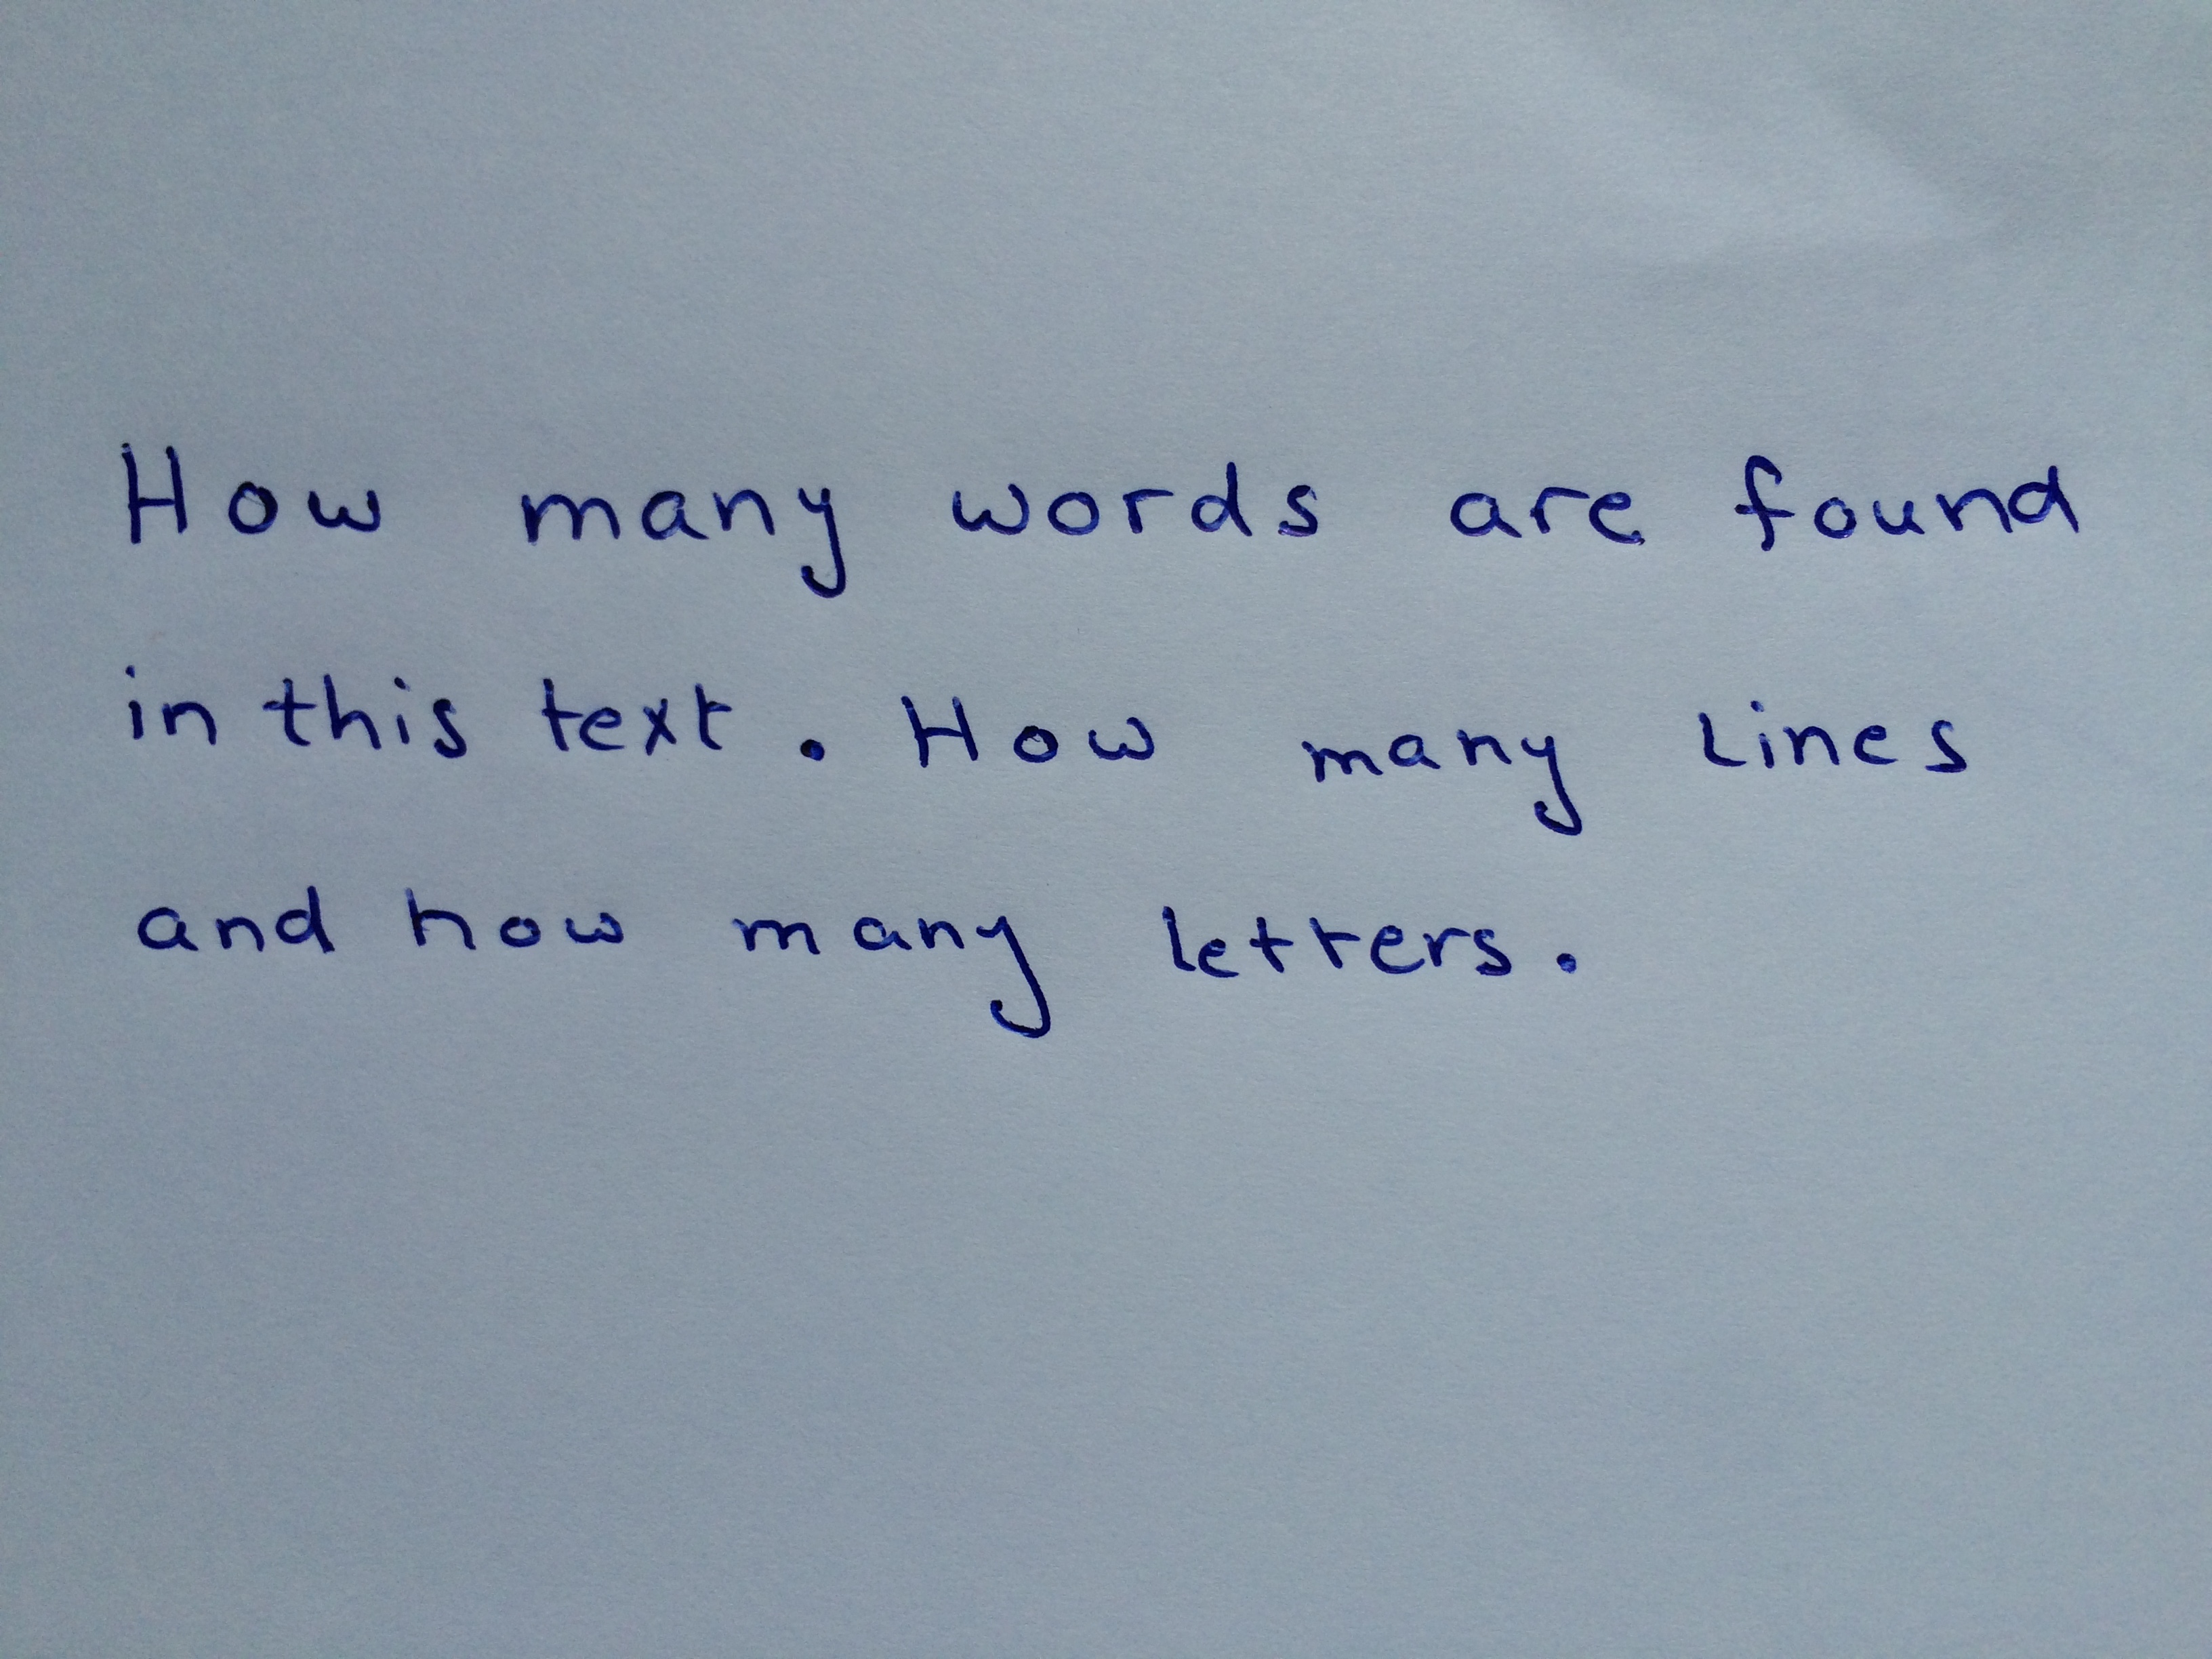 How many words are found
in this text. How many lines
and how many letters.